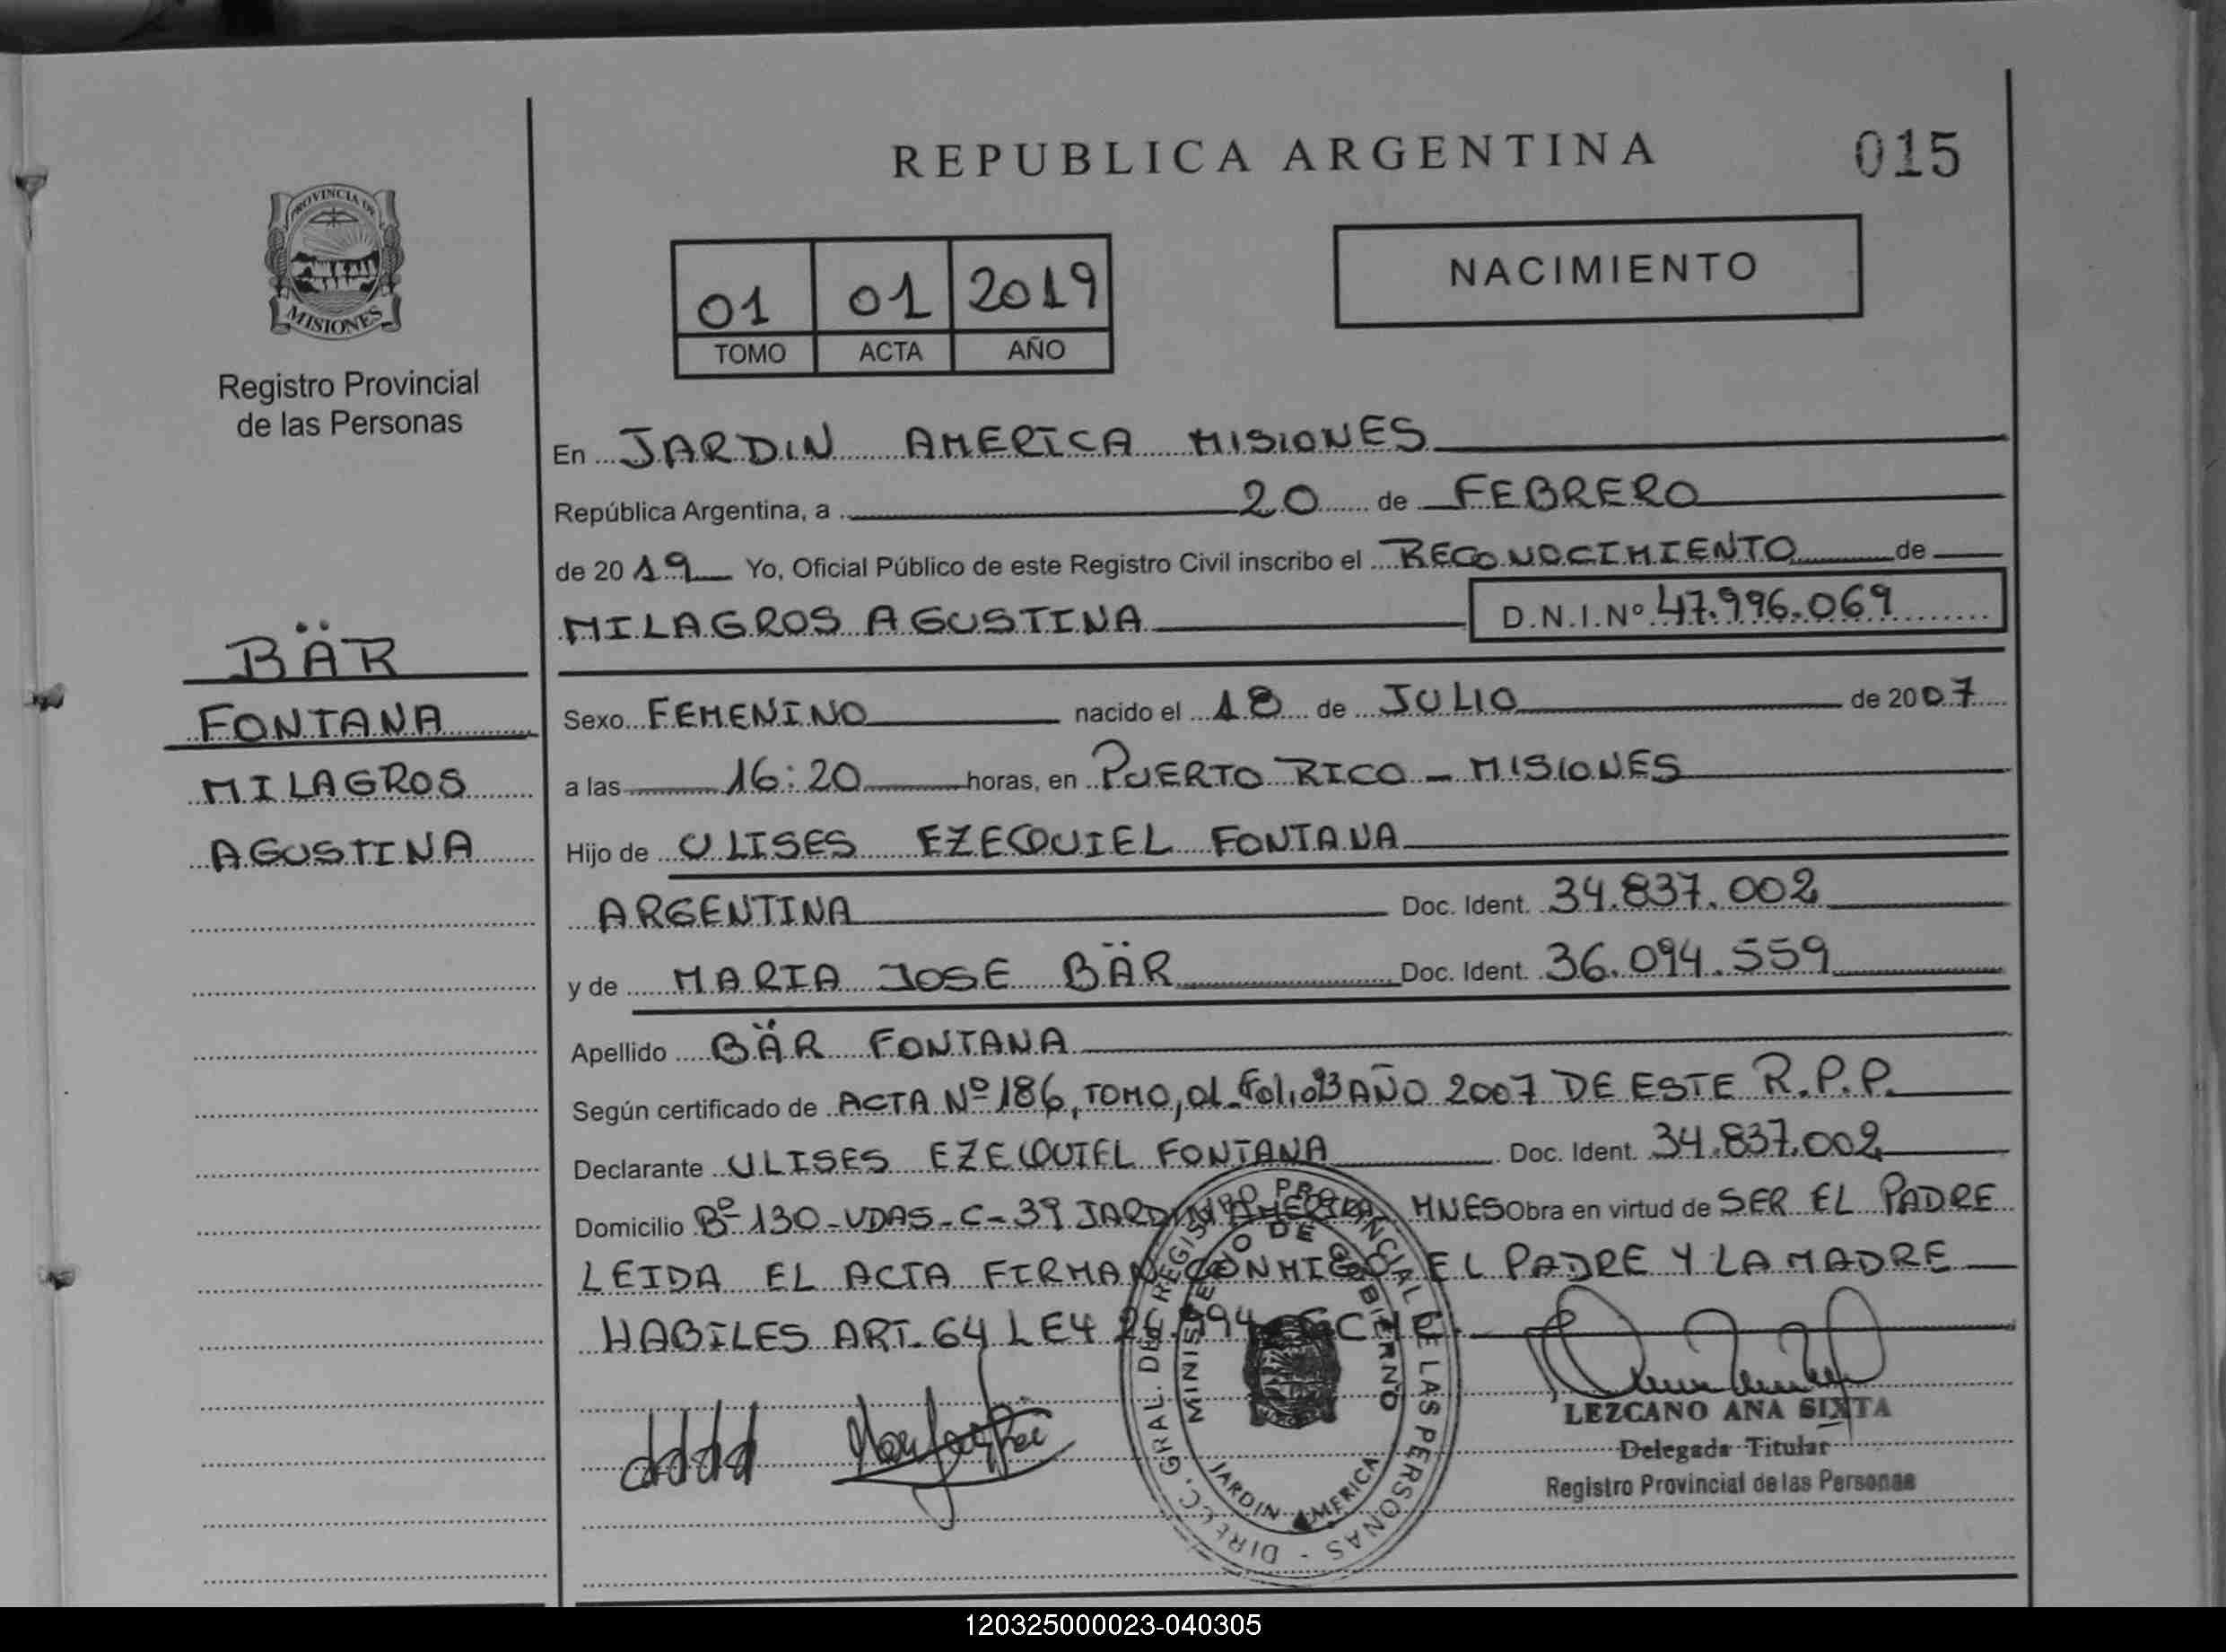 REPUBLICA ARGENTINA
015
PROVINCIA DE
MISIONES
Registro Provincial
de las Personas
01 01 2019
TOMO ACTA AÑO
NACIMIENTO
BÄR
FONTANA
MILAGROS
AGUSTINA
En JARDIN AMERICA MISIONES
República Argentina, a 20 de FEBRERO
de 2019 Yo, Oficial Público de este Registro Civil inscribo el RECONOCIMIENTO de
MILAGROS AGUSTINA D.N.I.Nº 47.996.069
Sexo FEMENINO nacido el 18 de JULIO de 2007
a las 16:20 horas, en PUERTO RICO - MISIONES
Hijo de ULISES EZEQUIEL FONTANA
ARGENTINA Doc. Ident. 34.837.002
y de MARIA JOSE BÄR Doc. Ident. 36.094.559
Apellido BÄR FONTANA
Según certificado de ACTA Nº 186, TOMO, 01 Folio 93 AÑO 2007 DE ESTE R.P.P.
Declarante ULISES EZEQUIEL FONTANA Doc. Ident. 34.837.002
Domicilio Bº 130-VDAS-C-39 JARDIN AMERICA MNES Obra en virtud de SER EL PADRE
LEIDA EL ACTA FIRMAN CONMIGO EL PADRE Y LA MADRE
HABILES ART. 64 LEY 26.994
DIRECC. GRAL. DEL REGISTRO PROVINCIAL DE LAS PERSONAS
MINISTERIO DE GOBIERNO
JARDIN AMERICA
LEZCANO ANA SIXTA
Delegada Titular
Registro Provincial de las Personas
120325000023-040305